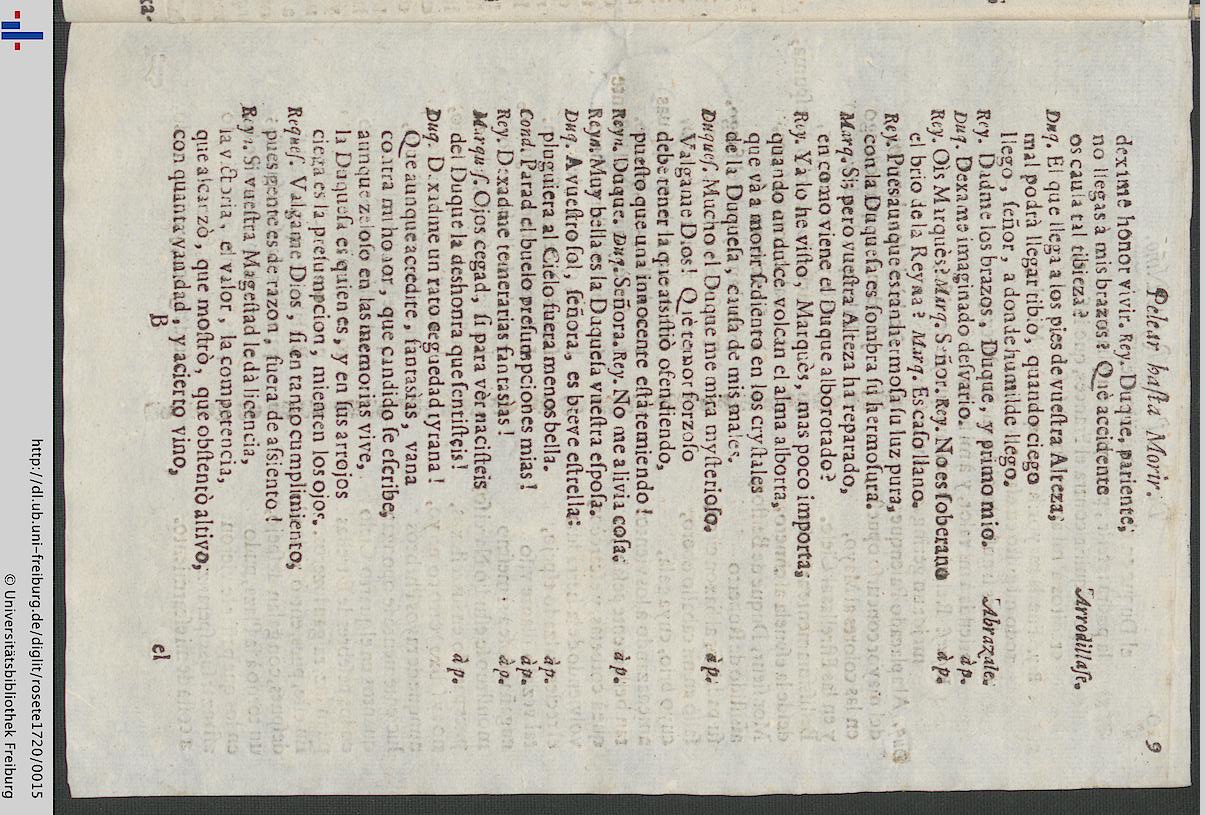 Pelear hasta Morir. 9
dexime honor vivir. Rey. Duque, pariente,
no llegas à mis brazos? Què accidente
os causa tal tibieza? Arrodillase.
Duq. El que llega a los pies de vuestra Alteza,
mal podrà llegar tibio, quando ciego
llego, señor, a donde humilde llego.
Rey. Didme los brazos, Duque, y primo mio. Abrazale.
Duq. Dexame imaginado desvario. à p.
Rey. Ois Marquès? Marq. Señor. Rey. No es soberano à p.
el brio de la Reyna? Marq. Es caso llano.
Rey. Pues aunque es tan hermosa su luz pura,
con la Duquesa es sombra su hermosura.
Marq. Si; pero vuestra Alteza ha reparado,
en como viene el Duque alborotado?
Rey. Ya lo he visto, Marquès, mas poco importa,
quando un dulce volcan el alma aborta,
que và a morir sediento en los crystales
de la Duquesa, causa de mis males.
Duques. Mucho el Duque me mira mysterioso. à p.
Valgame Dios! Què temor forzoso
debe tener la que assistiò ofendiendo,
puesto que una innocente està temiendo!
Reyn. Duque. Duq. Señora. Rey. No me alivia cosa. à p.
Reyn. Muy bella es la Duquesa vuestra esposa.
Duq. A vuestro sol, señora, es breve estrella:
pluguiera al Cielo fuera menos bella. à p.
Cond. Parad el buelo presumpciones mias! à p.
Rey. Dexadme temerarias fantasias! à p.
Marqus. Ojos cegad, si para vèr nacisteis
del Duque la deshonra que sentisteis! à p.
Duq. Dexidme un rato ceguedad tyrana!
Que aunque acredite, fantasias, vana
contra mi honor, que candido se escribe,
aunque zeloso en las memorias vive,
la Duquesa es quien es, y en sus arrojos
ciega es la presumpcion, mienten los ojos.
Reques. Valgame Dios, si en tanto cumplimiento,
pues gente es de razon, fuera de assiento!
Rey. Si vuestra Magestad le dà licencia,
la victoria, el valor, la competencia,
que alcanzò, que mostrò, que obstentò altivo,
con quanta vanidad, y acierto vino,
B el
http://dl.ub.uni-freiburg.de/diglit/rosete1720/0015
© Universitätsbibliothek Freiburg